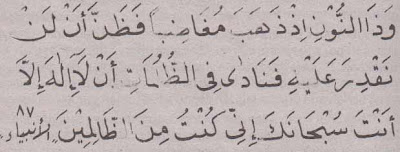 وَذَا النُّوْنِ اِذْ ذَهَبَ مُغَاضِباً فَظَنَّ أَنْ لَنْ
نَقْدِرَ عَلَيْهِ فَنَادٰى فِى الظُّلُمَاتِ أَنْ لَآ إِلٰهَ إِلَّا
أَنْتَ سُبْحَانَكَ إِنِّى كُنْتُ مِنَ الظَالِمِيْنَ الأنبياء ٨٧